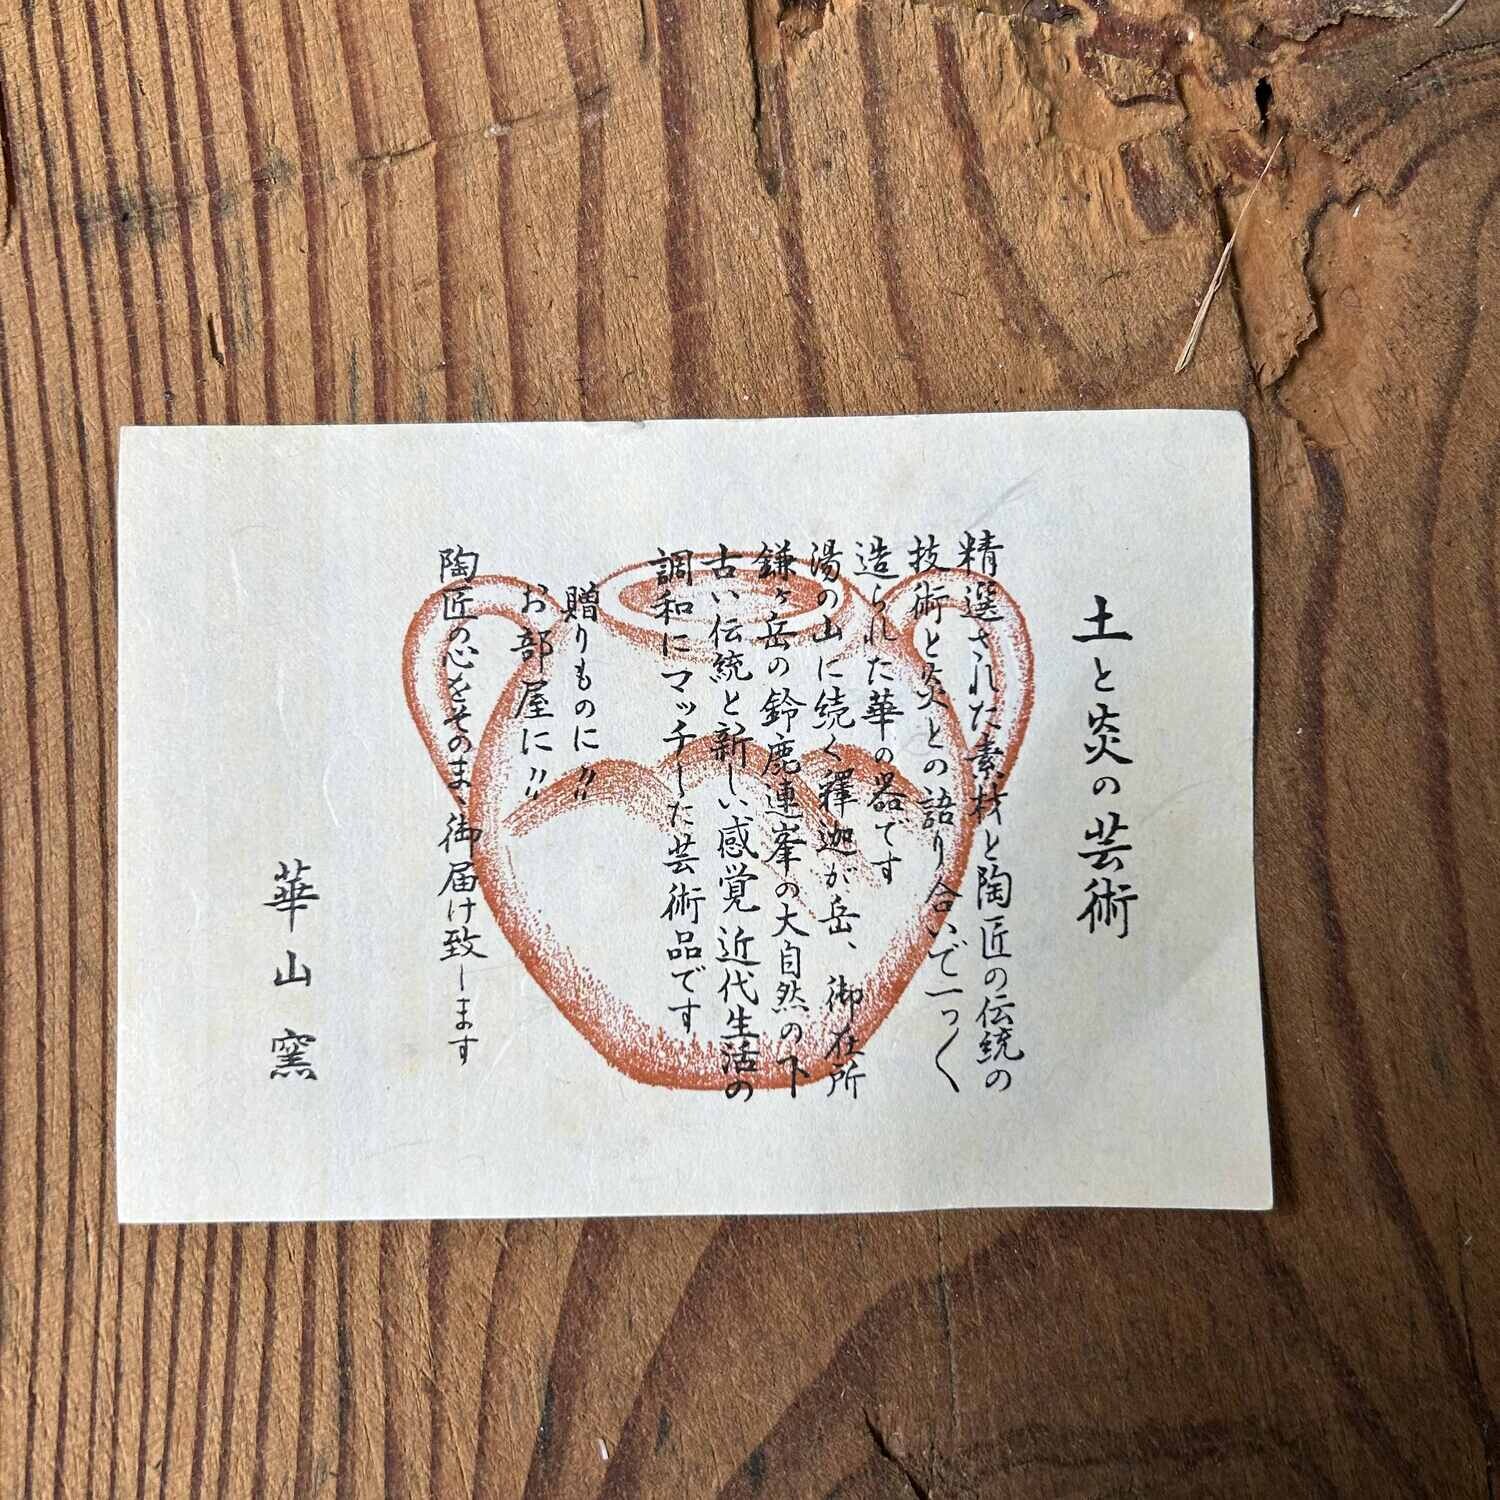 土と炎の芸術
精選された素材と陶匠の伝統の
技術と炎との語り合いで一つ〱
造られた華の器です
湯の山に続く釋迦が岳、御在所
鎌ヶ岳の鈴鹿連峯の大自然の下
古い伝統と新しい感覚近代生活の
調和にマッチした芸術品です
贈りものに〃
お部屋に〃
陶匠の心をそのまゝ御届け致します
華山窯